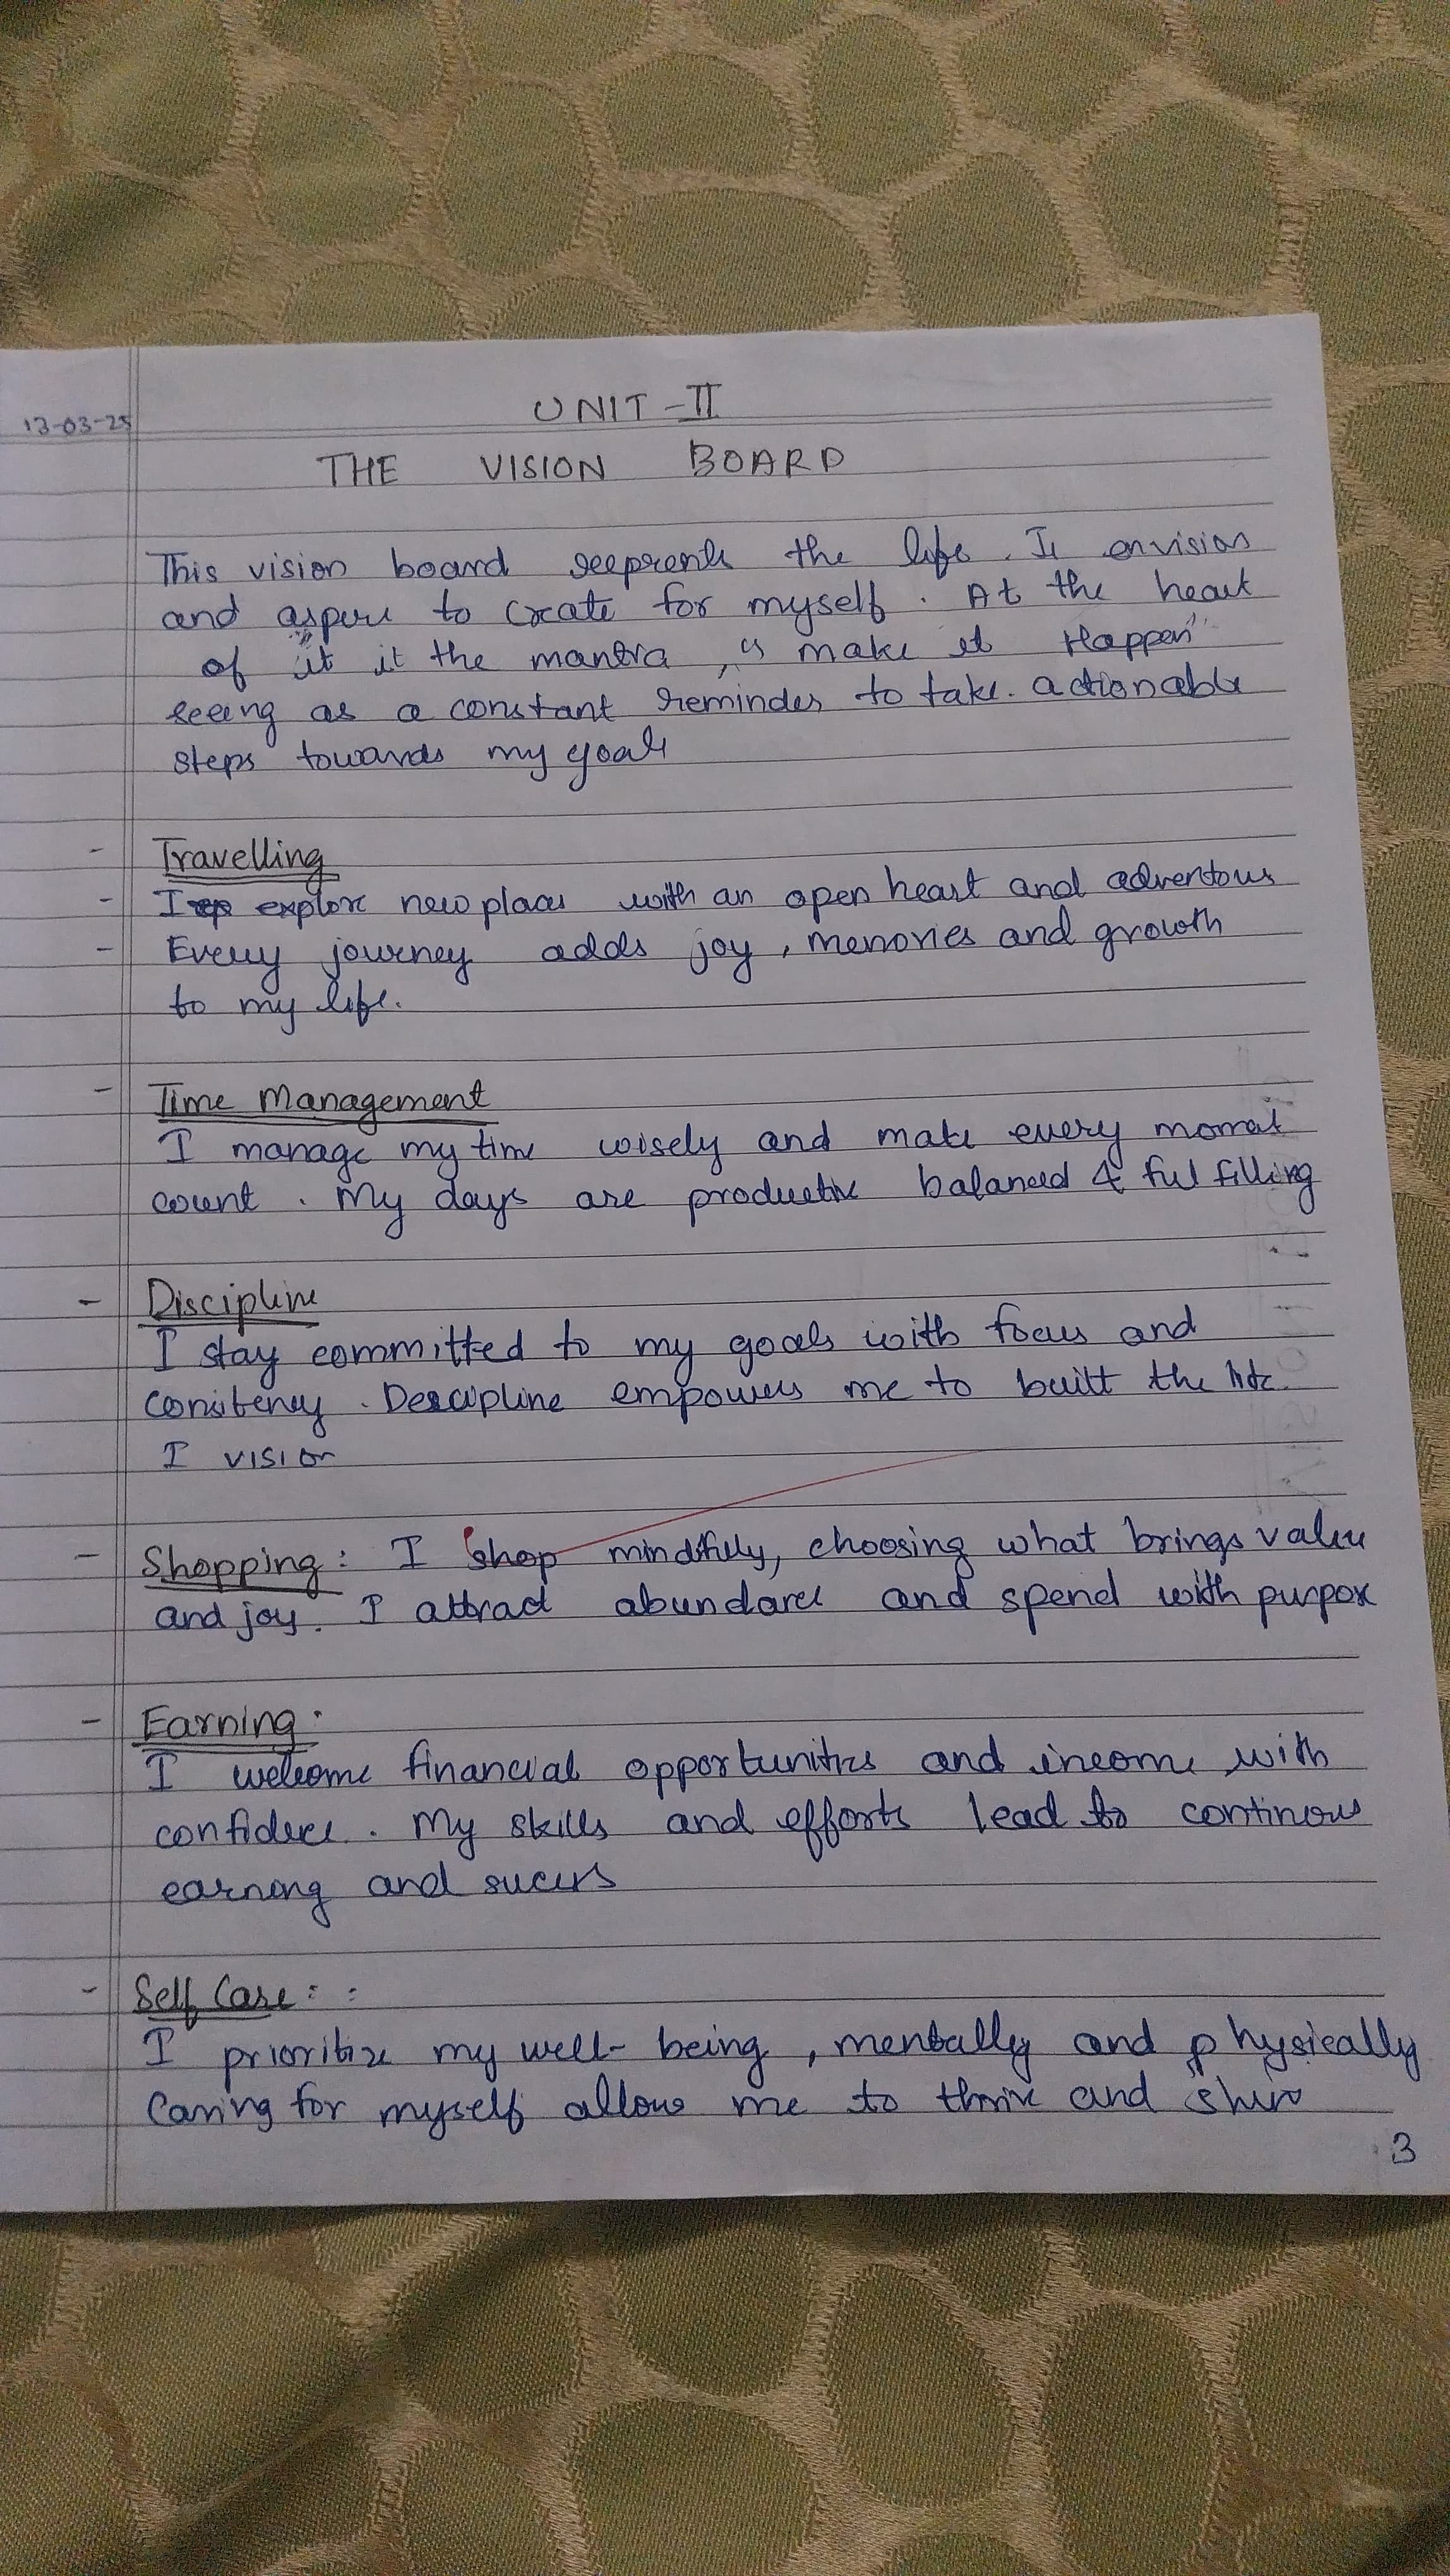 UNIT - II
13-03-25
THE VISION BOARD
This vision board reeprents the life. It envision
and aspire to create for myself. At the heart
of it it the mantra, "make it Happen"
seeing as a constant reminder to take actionable
steps towards my goals
- Travelling
- I explore new places with an open heart and adventous
- Every journey adds joy, memories and growth
to my life.
- Time Management
I manage my time wisely and make every moment
count. My days are productive balanced & fulfilling
- Discipline
I stay committed to my goals with focus and
consitency. Descipline empowers me to built the life
I vision
- Shopping: I shop mindfully, choosing what brings value
and joy. I attract abundance and spend with purpose
- Earning:
I welcome financial opportunities and income with
confidence. My skills and efforts lead to continous
earning and success
- Self Care: :
I prioritize my well-being, mentally and physically
Caring for myself allows me to thrive and shine
3